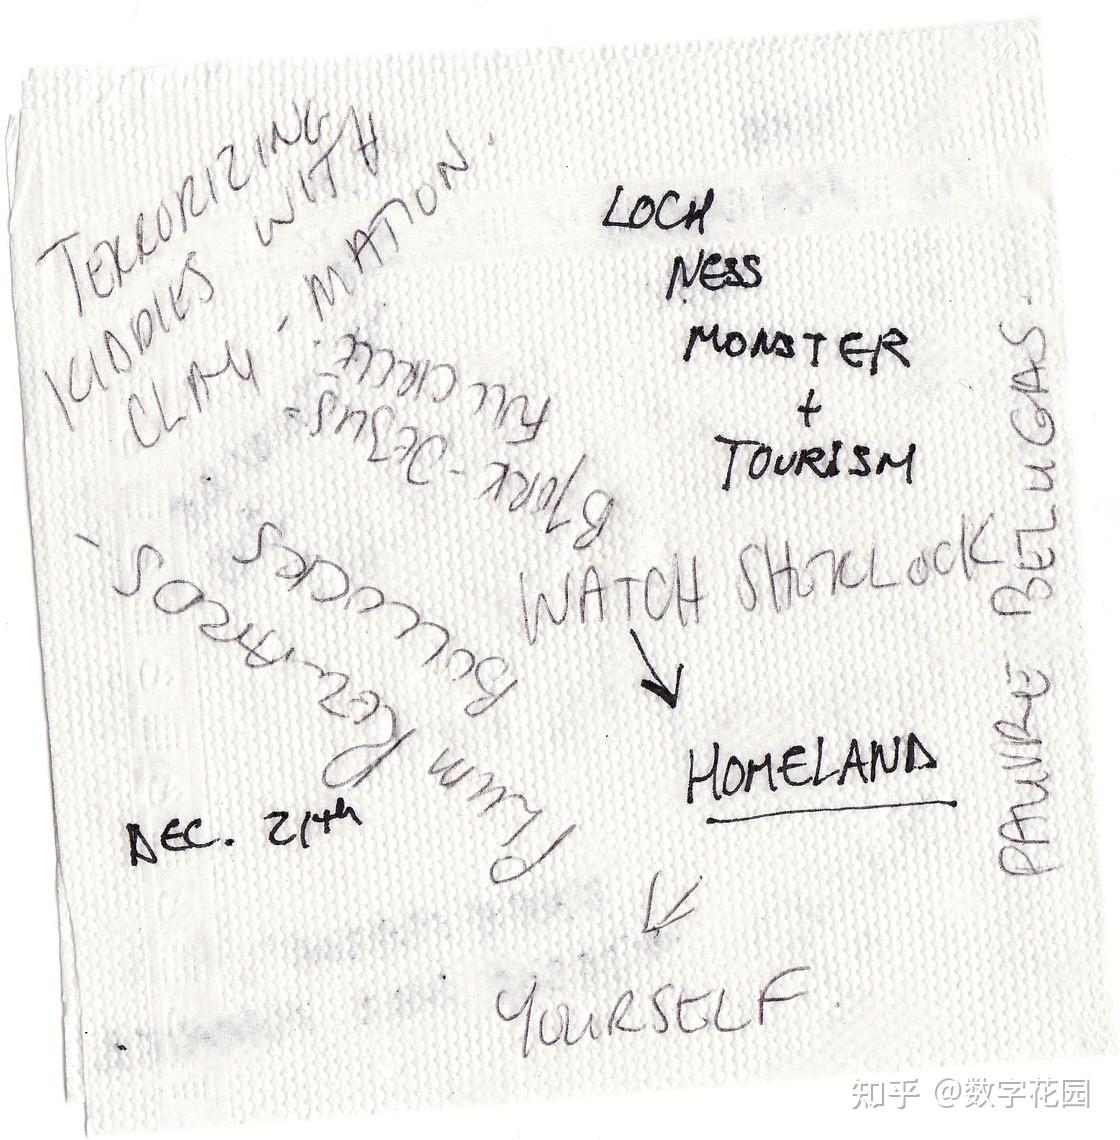 TERRORIZING
KIDDIES WITH
CLAY - MATION.
LOCH
NESS
MONSTER
+
TOURISM
BJORK - JESUS =
FULL CIRCLE
WATCH SHERLOCK
HOMELAND
PAUVRE BELUGAS.
BOLLOCKS
DEC. 21st
YOURSELF.
知乎 @数字花园